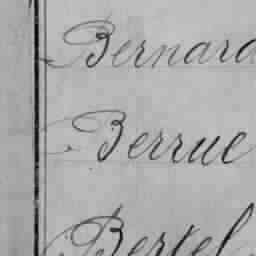 Bernard
Berrue
Bertel